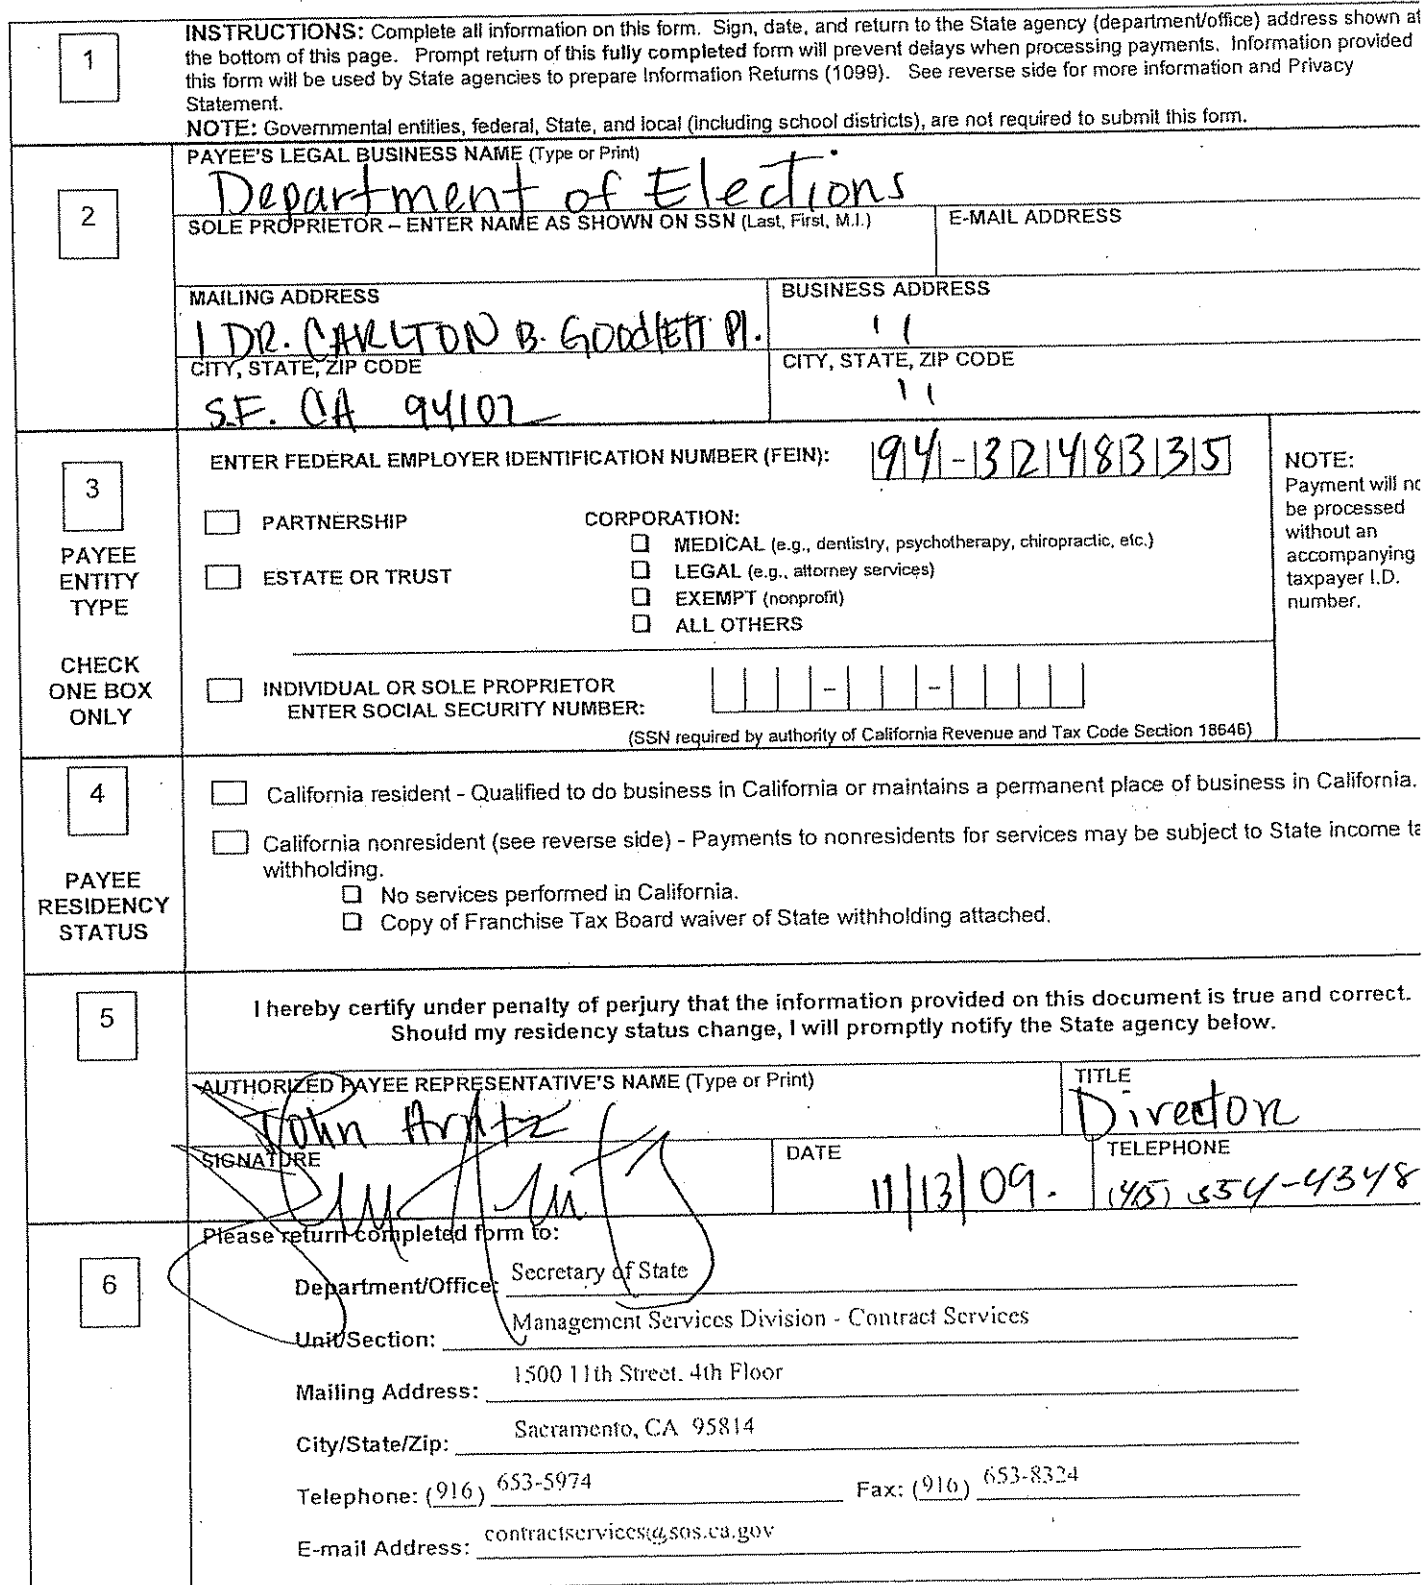 1
INSTRUCTIONS: Complete all information on this form. Sign, date, and return to the State agency (department/office) address shown at
the bottom of this page. Prompt return of this fully completed form will prevent delays when processing payments. Information provided
this form will be used by State agencies to prepare Information Returns (1099). See reverse side for more information and Privacy
Statement.
NOTE: Governmental entities, federal, State, and local (including school districts), are not required to submit this form.
2
PAYEE'S LEGAL BUSINESS NAME (Type or Print)
Department of Elections
SOLE PROPRIETOR – ENTER NAME AS SHOWN ON SSN (Last, First, M.I.)
E-MAIL ADDRESS
MAILING ADDRESS
1 DR. CARLTON B. GOODLETT Pl.
BUSINESS ADDRESS
' '
CITY, STATE, ZIP CODE
S.F. CA 94102
CITY, STATE, ZIP CODE
' '
3
PAYEE
ENTITY
TYPE
CHECK
ONE BOX
ONLY
ENTER FEDERAL EMPLOYER IDENTIFICATION NUMBER (FEIN): 94-3248335
PARTNERSHIP
ESTATE OR TRUST
CORPORATION:
MEDICAL (e.g., dentistry, psychotherapy, chiropractic, etc.)
LEGAL (e.g., attorney services)
EXEMPT (nonprofit)
ALL OTHERS
INDIVIDUAL OR SOLE PROPRIETOR
ENTER SOCIAL SECURITY NUMBER: - -
(SSN required by authority of California Revenue and Tax Code Section 18646)
NOTE:
Payment will no
be processed
without an
accompanying
taxpayer I.D.
number.
4
PAYEE
RESIDENCY
STATUS
California resident - Qualified to do business in California or maintains a permanent place of business in California.
California nonresident (see reverse side) - Payments to nonresidents for services may be subject to State income ta
withholding.
No services performed in California.
Copy of Franchise Tax Board waiver of State withholding attached.
5
I hereby certify under penalty of perjury that the information provided on this document is true and correct.
Should my residency status change, I will promptly notify the State agency below.
AUTHORIZED PAYEE REPRESENTATIVE'S NAME (Type or Print)
John Arntz
TITLE
Director
SIGNATURE
DATE
11/13/09.
TELEPHONE
(415) 554-4348
6
Please return completed form to:
Department/Office: Secretary of State
Unit/Section: Management Services Division - Contract Services
Mailing Address: 1500 11th Street. 4th Floor
City/State/Zip: Sacramento, CA 95814
Telephone: (916) 653-5974 Fax: (916) 653-8324
E-mail Address: contractservices@sos.ca.gov